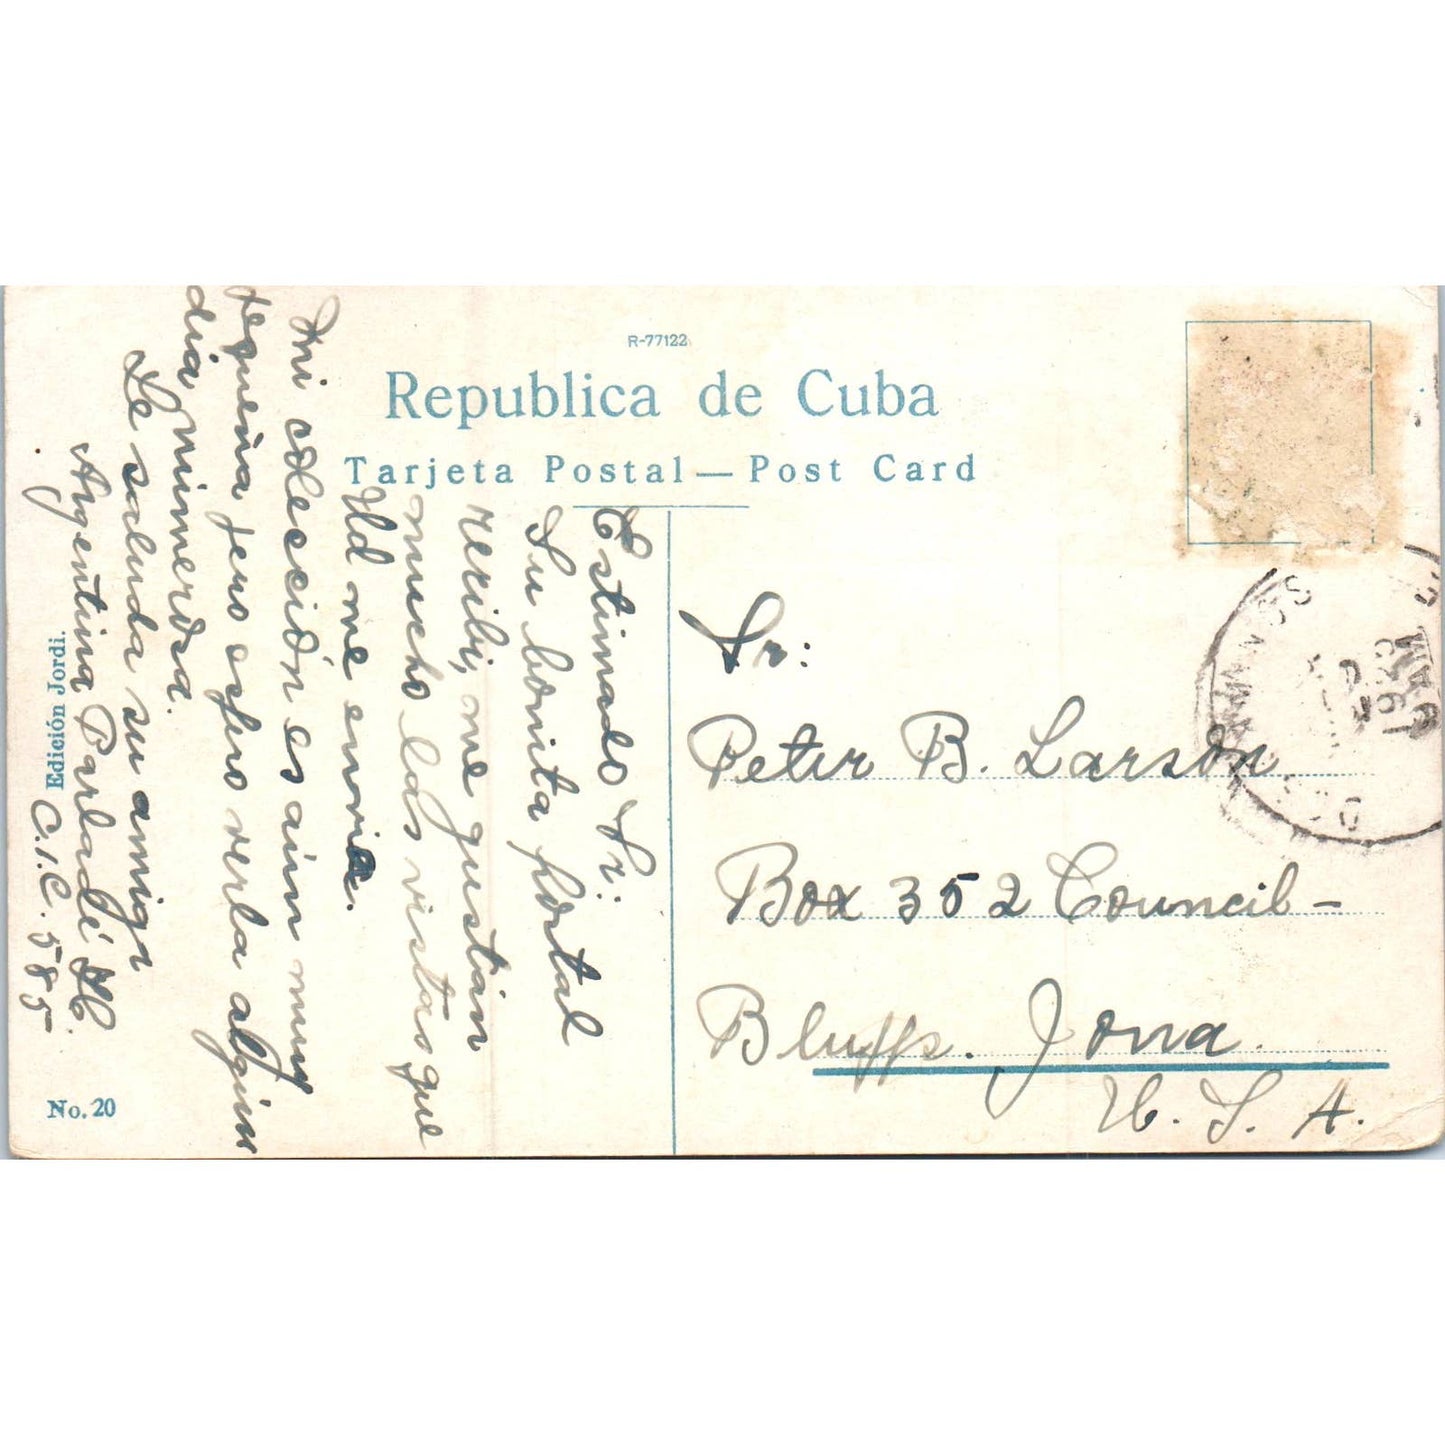 R-77122
Republica de Cuba
Tarjeta Postal — Post Card
Estimado Sr:
Su bonita postal
recibi, me gustan
mucho las vistas que
Ud me envia.
mi colección es aún muy
pequeña pero espero verla algún
dia numerosa.
Le saluda su amiga
Argentina Parladé H.
C.I.C. 585
Edición Jordi.
No. 20
Sr:
Peter B. Larson
Box 352 Council-
Bluffs. Iowa.
U. S. A.